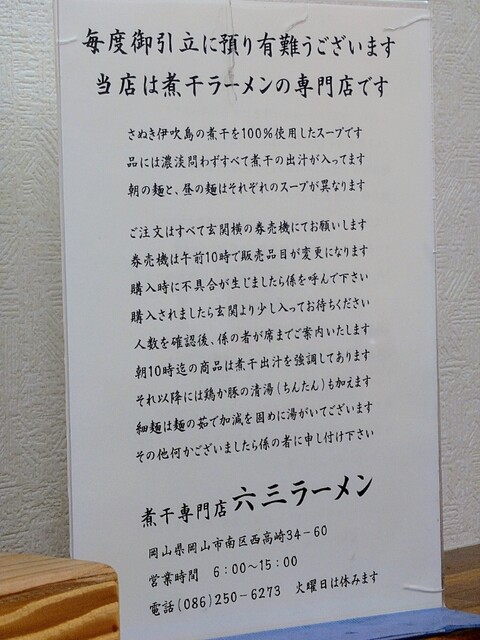 毎度御引立に預り有難うございます
当店は煮干ラーメンの専門店です
さぬき伊吹島の煮干を100%使用したスープです
品には濃淡問わずすべて煮干の出汁が入ってます
朝の麺と、昼の麺はそれぞれのスープが異なります
ご注文はすべて玄関横の券売機にてお願いします
券売機は午前10時で販売品目が変更になります
購入時に不具合が生じましたら係を呼んで下さい
購入されましたら玄関より少し入ってお待ちください
人数を確認後、係の者が席までご案内いたします
朝10時迄の商品は煮干出汁を強調してあります
それ以降には鶏か豚の清湯(ちんたん)も加えます
細麺は麺の茹で加減を固めに湯がいてございます
その他何かございましたら係の者に申し付け下さい
煮干専門店 六三ラーメン
岡山県岡山市南区西高崎34-60
営業時間 6:00~15:00
電話(086)250-6273 火曜日は休みます